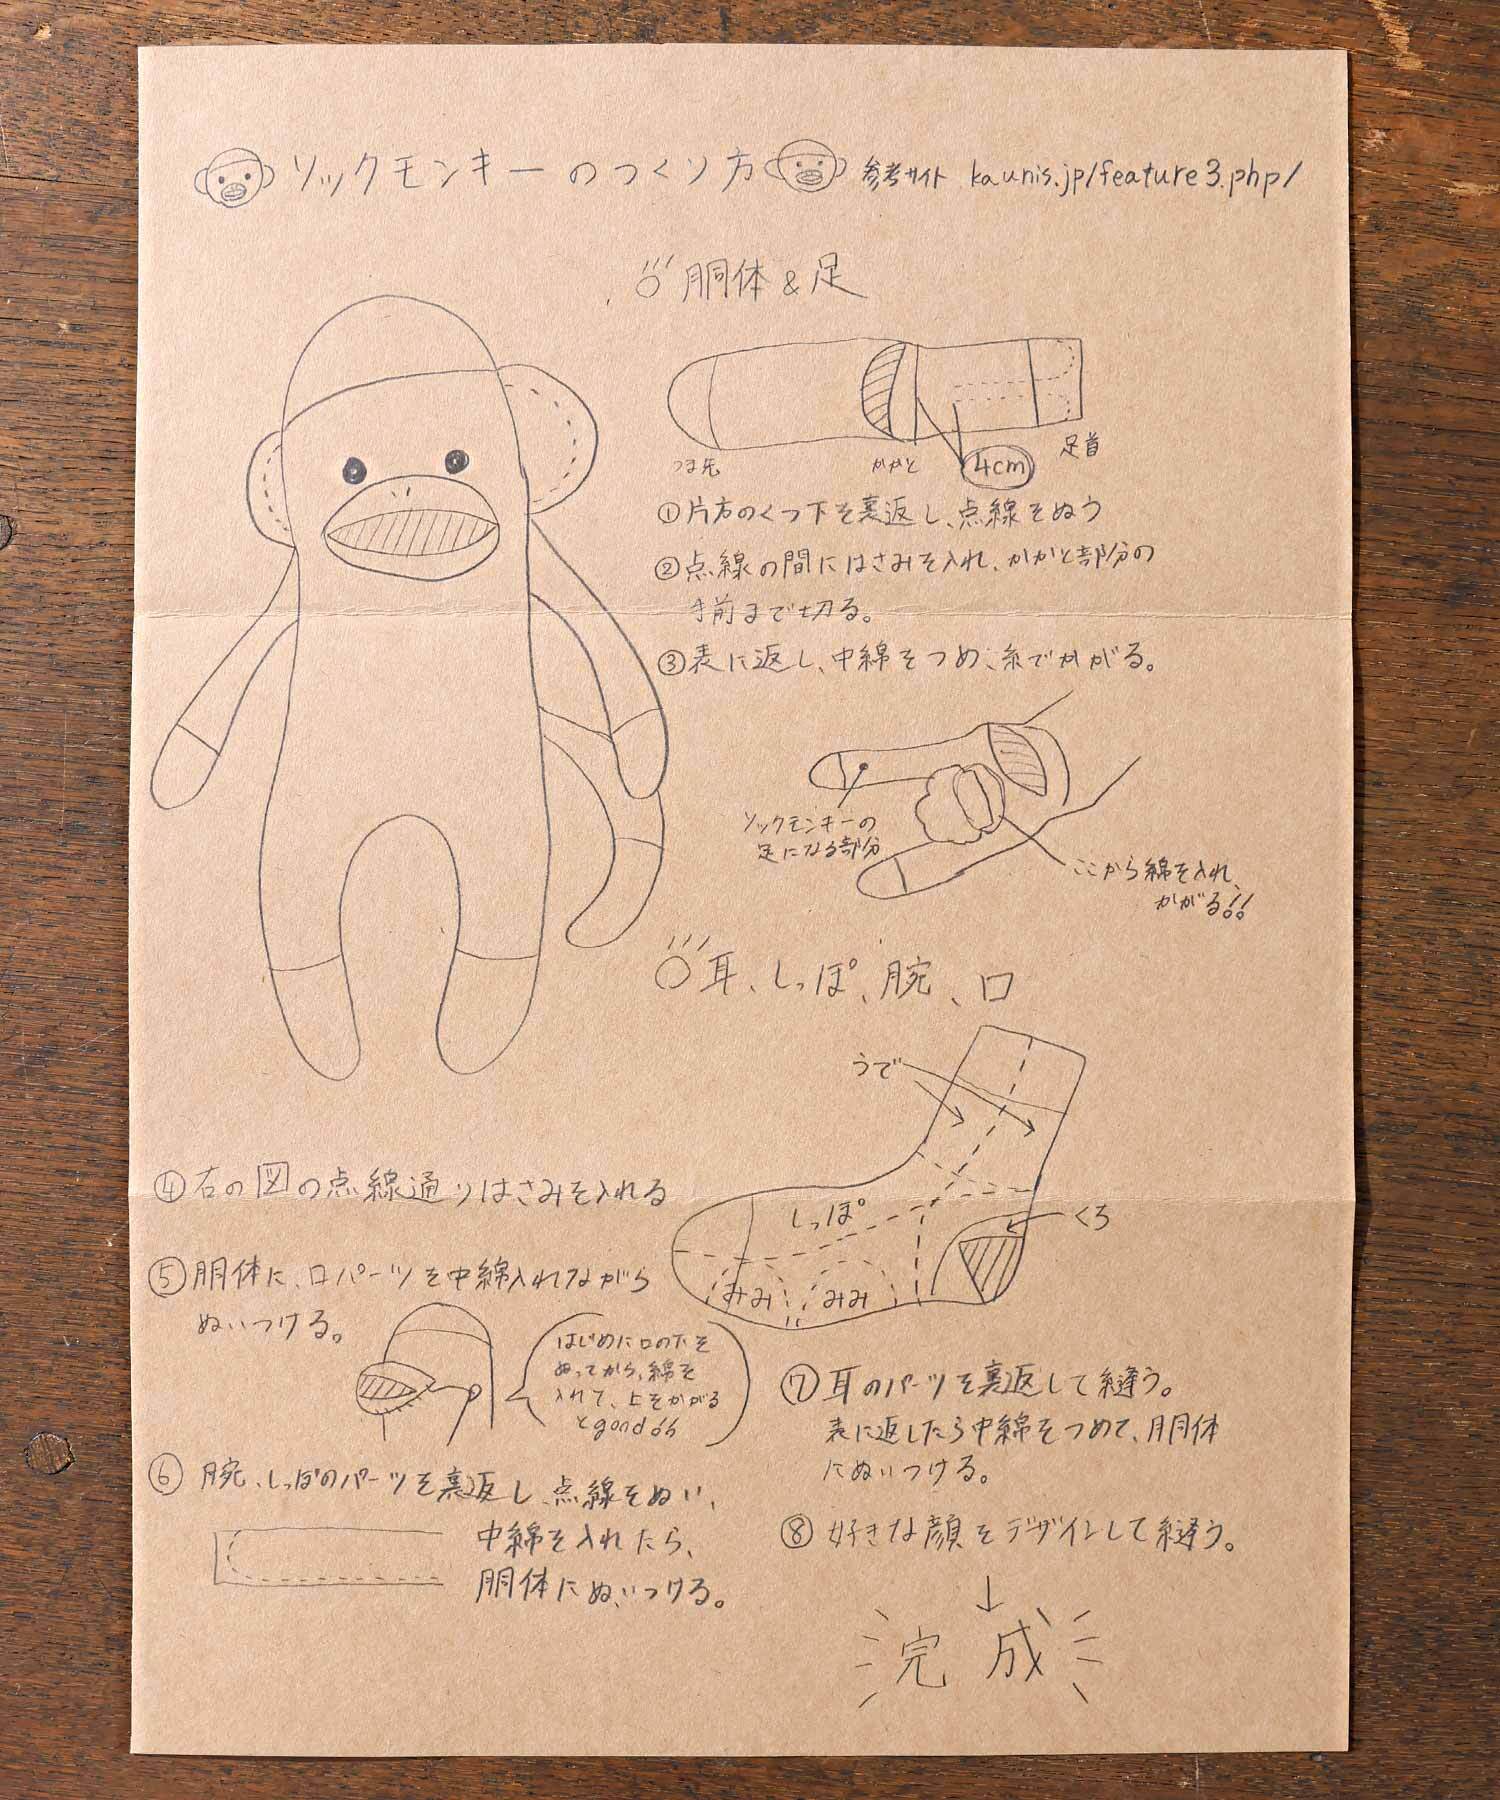 ソックモンキーのつくり方
参考サイト kaunis.jp/feature3.php/
胴体&足
つま先
かかと
4cm
足首
①片方のくつ下を裏返し、点線をぬう
②点線の間にはさみを入れ、かかと部分の
手前まで切る。
③表に返し、中綿をつめ、糸でかがる。
ソックモンキーの
足になる部分
ここから綿を入れ、
かがる!!
耳、しっぽ、腕、口
うで
しっぽ
くち
みみ
みみ
④右の図の点線通りはさみを入れる
⑤胴体に、口パーツを中綿入れながら
ぬいつける。
はじめに口の下を
ぬってから、綿を
入れて、上をかがる
とgood!!
⑥腕、しっぽのパーツを裏返し、点線をぬい、
中綿を入れたら、
胴体にぬいつける。
⑦耳のパーツを裏返して縫う。
表に返したら中綿をつめて、胴体
にぬいつける。
⑧好きな顔をデザインして縫う。
↓
完成